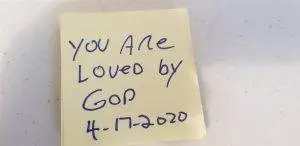 YOU ARE
LOVED by
GOD
4-17-2020